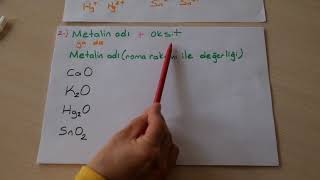 Hg⁺ Hg²⁺ Sn Sn
2-) Metalin adı + oksit
ya da
Metalin adı (roma rakamı ile değerliği)
CaO
K₂O
Hg₂O
SnO₂